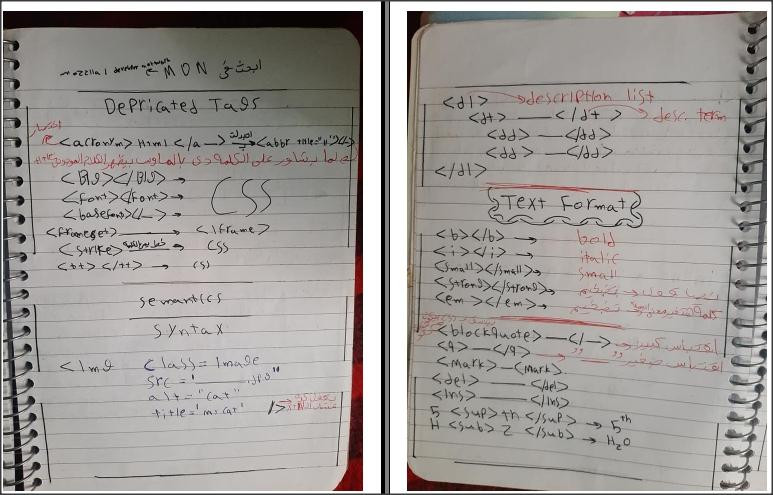 ابحث في MDN
mozzilla developer network
Depricated Tags
<acronym> Html </a> → <abbr title=" "></>
لما يشاور على الكلمة دي بالماوس يظهر الكلام الموجود في title
<Big></Big> →
<font></font> → CSS
<basefont></—> →
<frameset> → <iframe>
<strike> → CSS
<tt> </tt> → CSS
semantics
syntax
<img class= image
src = ' .jpg"
alt = "cat"
title = 'm.cat' />
<dl> → description list
<dt> — </dt> → desc. term
<dd> — </dd>
<dd> — </dd>
</dl>
Text Format
<b></b> → bold
<i></i> → italic
<small></small> → small
<strong></strong> →
<em></em> →
<blockquote> — </—> → اقتباس كبير
<q> — </q> → اقتباس صغير " — "
<mark> — <mark>
<del> — </del>
<ins> — </ins>
5 <sup> th </sup> → 5th
H <sub> 2 </sub> → H2O